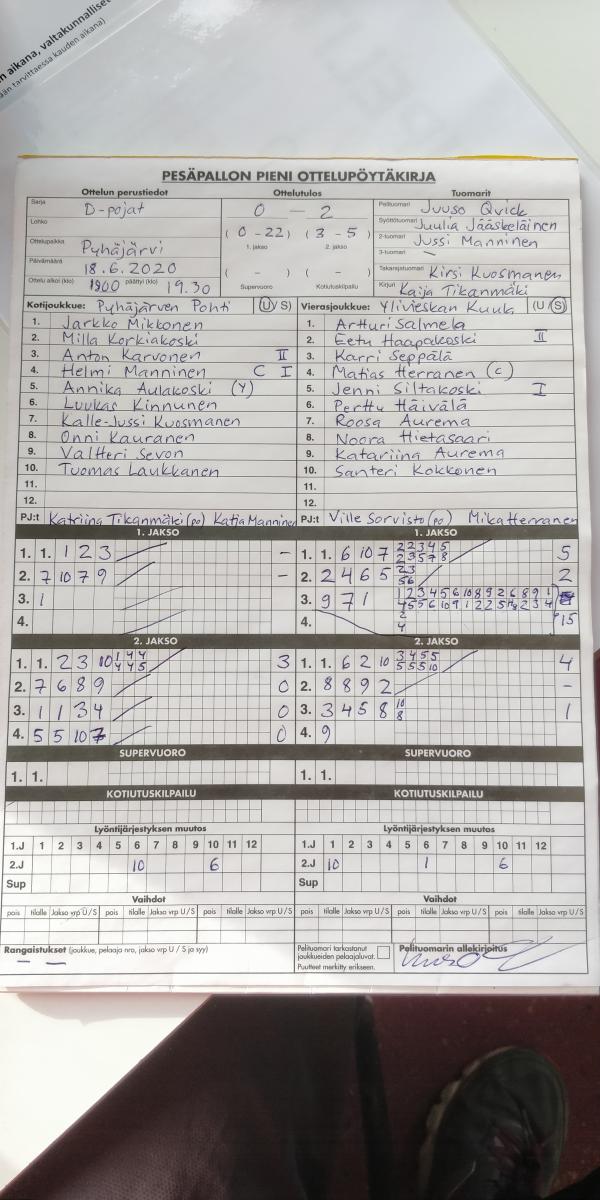 n aikana, valtakunnalliset
ään tarvittaessa kauden aikana)
PESÄPALLON PIENI OTTELUPÖYTÄKIRJA
Ottelun perustiedot Ottelutulos Tuomarit
Sarja D-pojat
Lohko
Ottelupaikka Pyhäjärvi
Päivämäärä 18.6.2020
Ottelu alkoi (klo) 1900 päättyi (klo) 19.30
0 - 2
(0-22) (3-5)
1. jakso 2. jakso
( - ) ( - )
Supervuoro Kotiutuskilpailu
Pelituomari Juuso Qvick
Syöttötuomari Juulia Jääskeläinen
2-tuomari Jussi Manninen
3-tuomari –
Takarajatuomari Kirsi Kuosmanen
Kirjuri Kaija Tikanmäki
Kotijoukkue: Pyhäjärven Pohti (U/S)
1. Jarkko Mikkonen
2. Milla Korkiakoski
3. Anton Karvonen II
4. Helmi Manninen C I
5. Annika Aulakoski (Y)
6. Luukas Kinnunen
7. Kalle-Jussi Kuosmanen
8. Onni Kauranen
9. Valtteri Sevon
10. Tuomas Laukkanen
11.
12.
PJ:t Katriina Tikanmäki (po) Katja Manninen
Vierasjoukkue: Ylivieskan Kuula (U/S)
1. Artturi Salmela
2. Eetu Haapakoski II
3. Karri Seppälä
4. Matias Herranen (C)
5. Jenni Siltakoski I
6. Perttu Häivälä
7. Roosa Aurema
8. Noora Hietasaari
9. Katariina Aurema
10. Santeri Kokkonen
11.
12.
PJ:t Ville Sorvisto (po) Mika Herranen
1. JAKSO
1. 1. 1 2 3 –
2. 7 10 7 9 –
3. 1
4.
1. JAKSO
1. 1. 6 10 7 2 2 3 4 5 5
2 3 5 7 8
2. 2 4 6 5 23 2
56
3. 9 7 1 1 2 3 4 5 6 10 8 9 2 6 8 9 1
15
4.
2. JAKSO
1. 1. 2 3 10 1 4 4 3
4 4 5
2. 7 6 8 9 0
3. 1 1 3 4 0
4. 5 5 10 7 0
2. JAKSO
1. 1. 6 2 10 3 4 5 5 4
5 5 5 10
2. 8 8 9 2 –
3. 3 4 5 8 10 1
8
4. 9
SUPERVUORO SUPERVUORO
1. 1. 1. 1.
KOTIUTUSKILPAILU KOTIUTUSKILPAILU
Lyöntijärjestyksen muutos Lyöntijärjestyksen muutos
1.J 1 2 3 4 5 6 7 8 9 10 11 12
2.J 10 6
Sup
1.J 1 2 3 4 5 6 7 8 9 10 11 12
2.J 10 1 6
Sup
Vaihdot Vaihdot
pois tilalle Jakso vrp U/S pois tilalle Jakso vrp U/S
pois tilalle Jakso vrp U/S pois tilalle Jakso vrp U/S
Rangaistukset (joukkue, pelaaja nro, jakso vrp U / S ja syy)
– –
Pelituomari tarkastanut
joukkueiden pelaajaluvat.
Puutteet merkitty erikseen.
Pelituomarin allekirjoitus